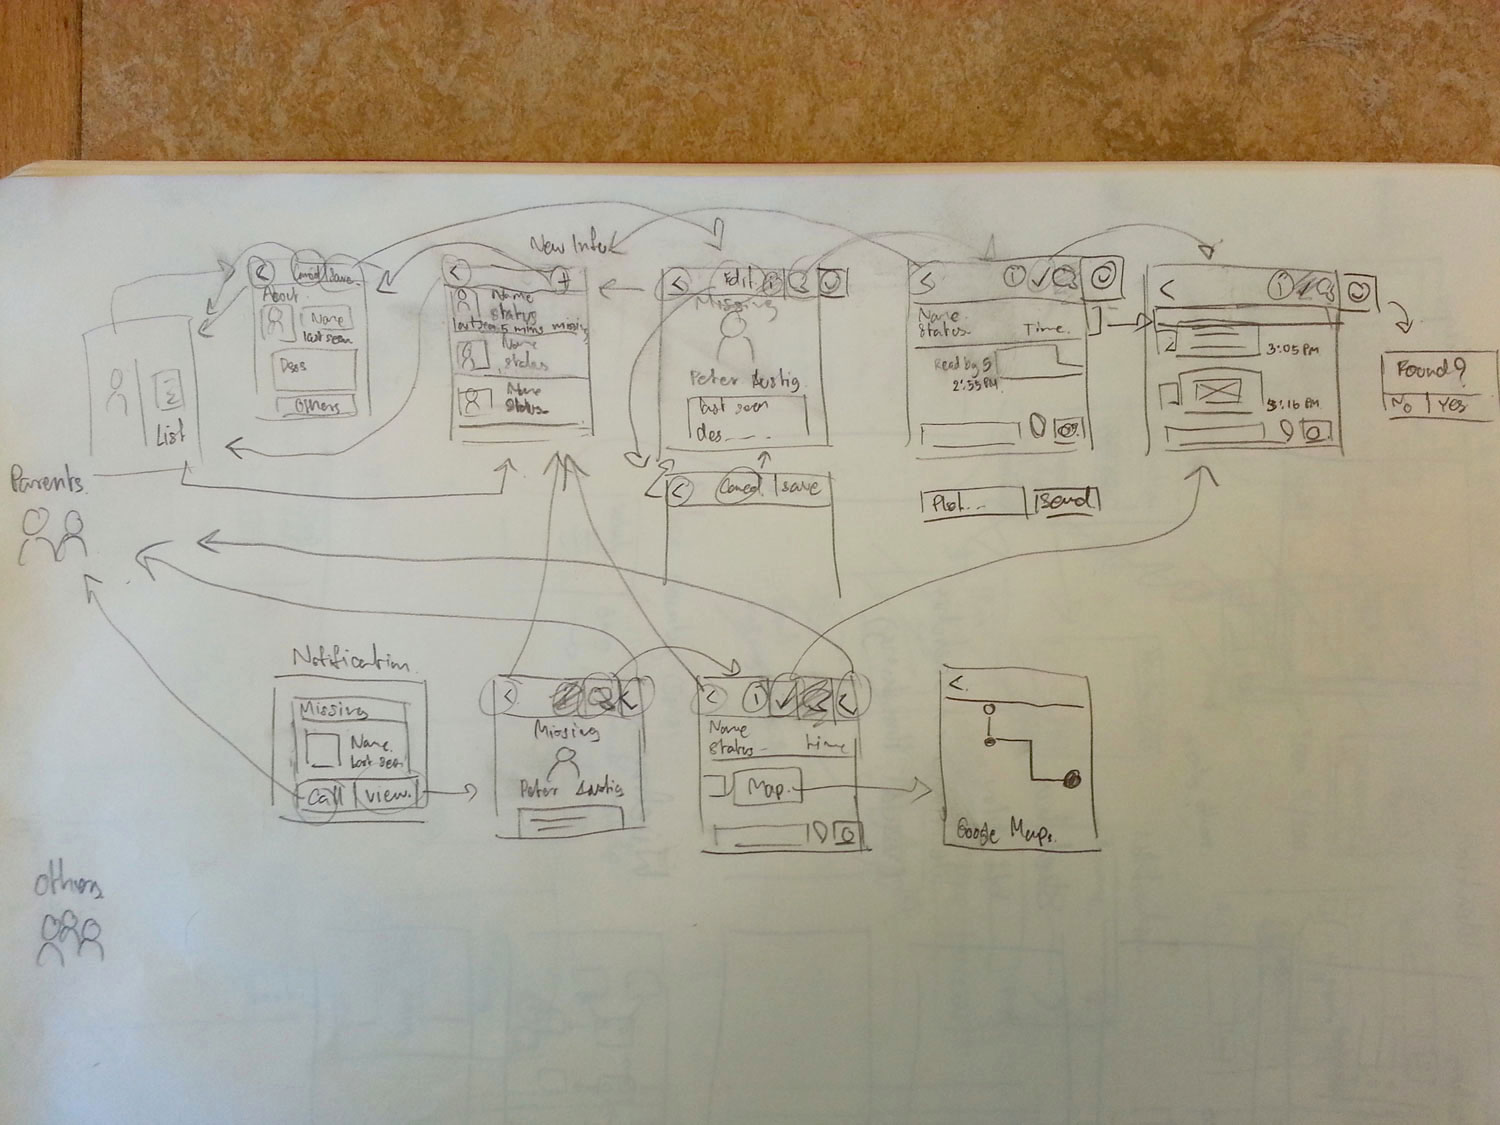 New Infer
Cancel | Save
About
Name
last seen
Des
Others
Name
Status
last seen 5 mins missing
Name
Status
Name
Status
Edit
Missing
Peter Austig
last seen
des....
Cancel | save
Name
Status
Time.
Read by 5
2:55 PM
Plot...
Send
3:05 PM
3:16 PM
Found?
No | Yes
List
Parents
Notification
Missing
Name
last seen
Call
View
Missing
Peter Austig
Name
Status
time
Map
Google Maps
Others